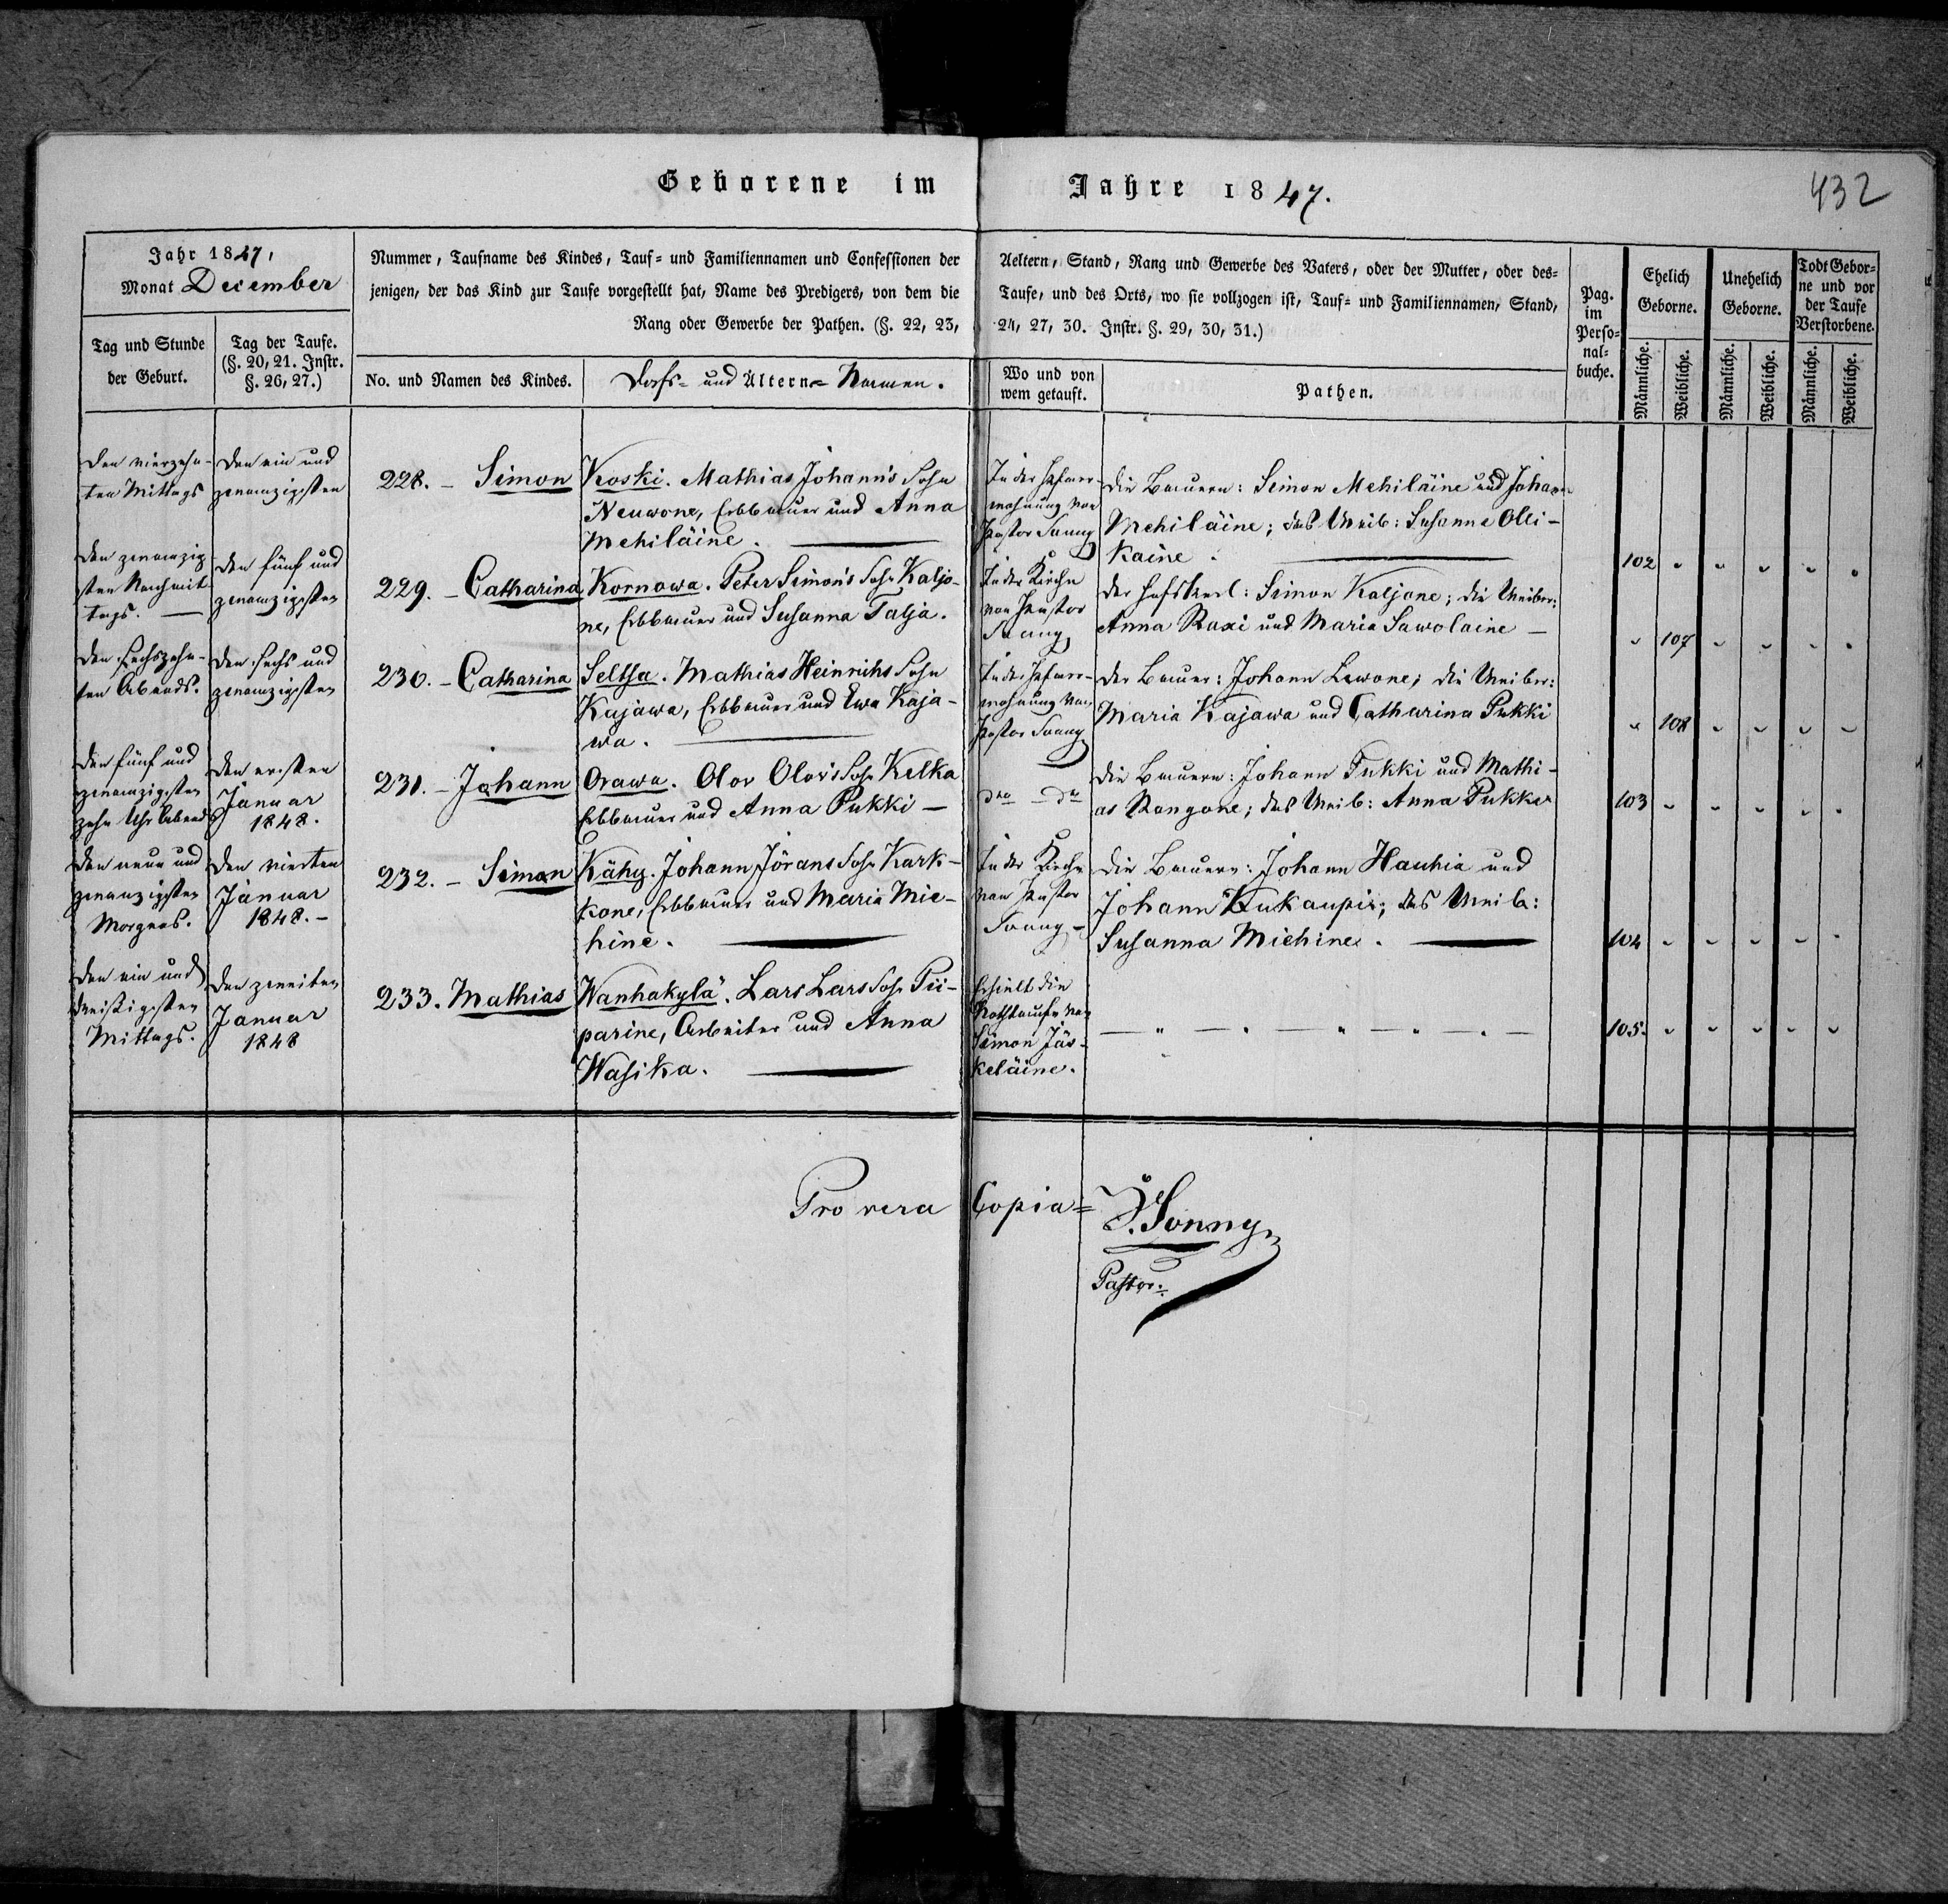 Geborene im Jahre 1847.
432
Jahr 1847,
Monat December
Nummer, Taufname des Kindes, Tauf- und Familiennamen und Confessionen der
Aeltern, Stand, Rang und Gewerbe des Vaters, oder der Mutter, oder des-
jenigen, der das Kind zur Taufe vorgestellt hat, Name des Predigers, von dem die
Taufe, und des Orts, wo sie vollzogen ist, Tauf- und Familiennamen, Stand,
Rang oder Gewerbe der Pathen. (§. 22, 23,
24, 27, 30. Instr. §. 29, 30, 31.)
Pag.
im
Perso-
nal-
buche.
Ehelich
Geborne.
Unehelich
Geborne.
Todt Gebor-
ne und vor
der Taufe
Verstorbene.
Tag und Stunde
der Geburt.
Tag der Taufe.
(§. 20, 21. Instr.
§. 26, 27.)
No. und Namen des Kindes.
Dorfs- und Altern- Namen.
Wo und von
wem getauft.
Pathen.
Männliche.
Weibliche.
Männliche.
Weibliche.
Männliche.
Weibliche.
Den vierzehn-
ten Mittags
Den ein und
zwanzigsten
228. - Simon
Koski. Mathias Johann's Sohn
Neuwone, Erbbauer und Anna
Mehiläine.
In der Pfarr-
wohnung von
Pastor Sonny
Die Bauern: Simon Mehiläine und Johann
Mehiläine; das Weib: Susanna Olli-
kaine.
102
Den zwanzig-
sten Nachmit-
tags.
Den fünf und
zwanzigsten
229. - Catharina
Kornowa. Peter Simon's Sohn Kaljo-
ne, Erbbauer und Susanna Talja.
In der Kirche
von Pastor
Sonny
Der Hofskerl: Simon Kaljone; die Weiber:
Anna Raxi und Maria Sawolaine
107
Den sechszehn-
ten Abends.
Den sechs und
zwanzigsten
230. - Catharina
Seltsa. Mathias Heinrichs Sohn
Kajawa, Erbbauer und Ewa Kaja-
wa.
In der Pfarr-
wohnung von
Pastor Sonny
Der Bauer: Johann Lewone; die Weiber:
Maria Kajawa und Catharina Pukki
108
Den fünf und
zwanzigsten
zehn Uhr Abends
Den ersten
Januar
1848.
231. - Johann
Orawa. Olov Olov's Sohn Kelka
Erbbauer und Anna Pukki
dto - dto
Die Bauern: Johann Tukki und Mathi-
as Rongone; das Weib: Anna Pukki
103
Den neun und
zwanzigsten
Morgens.
Den vierten
Januar
1848. -
232. - Simon
Kähy. Johann Jörans Sohn Kark-
kone, Erbbauer und Maria Mie-
hine.
In der Kirche
von Pastor
Sonny -
Die Bauern: Johann Hauhia und
Johann Kukaupi; das Weib:
Susanna Miehine.
104
Den ein und
dreißigsten
Mittags.
Den zweiten
Januar
1848
233. Mathias
Wanhakylä. Lars Lars Sohn Pii-
parine, Arbeiter und Anna
Wasika.
Erhielt die
Nothtaufe von
Simon Jäs-
keläine.
105.
Pro vera Copia=
J. Sonny
Pastor.